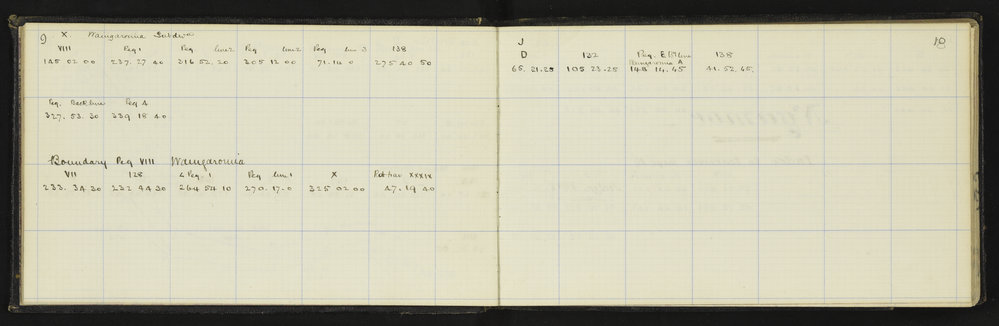 9 X Waingaromia Subdvn
VIII Peg 1 Peg line 2 Peg line 2 Peg line 3 138
145 02 00 237. 27 40 216 52. 20 305 12 00 71. 14 0 275 40 50
Peg. Back line Peg A
327. 53. 30 339 18 40
Boundary Peg VIII Waingaromia
VII 128 Peg. 1 Peg line 1 X Ref trav XXXIX
233. 34 30 232 44 30 264 54 10 270. 17. 0 325 02 00 47. 19 40
J 10
D 132 Peg. Waingaromia A 138
65. 21. 25 105 23. 25 148 14. 45 41. 52. 45.